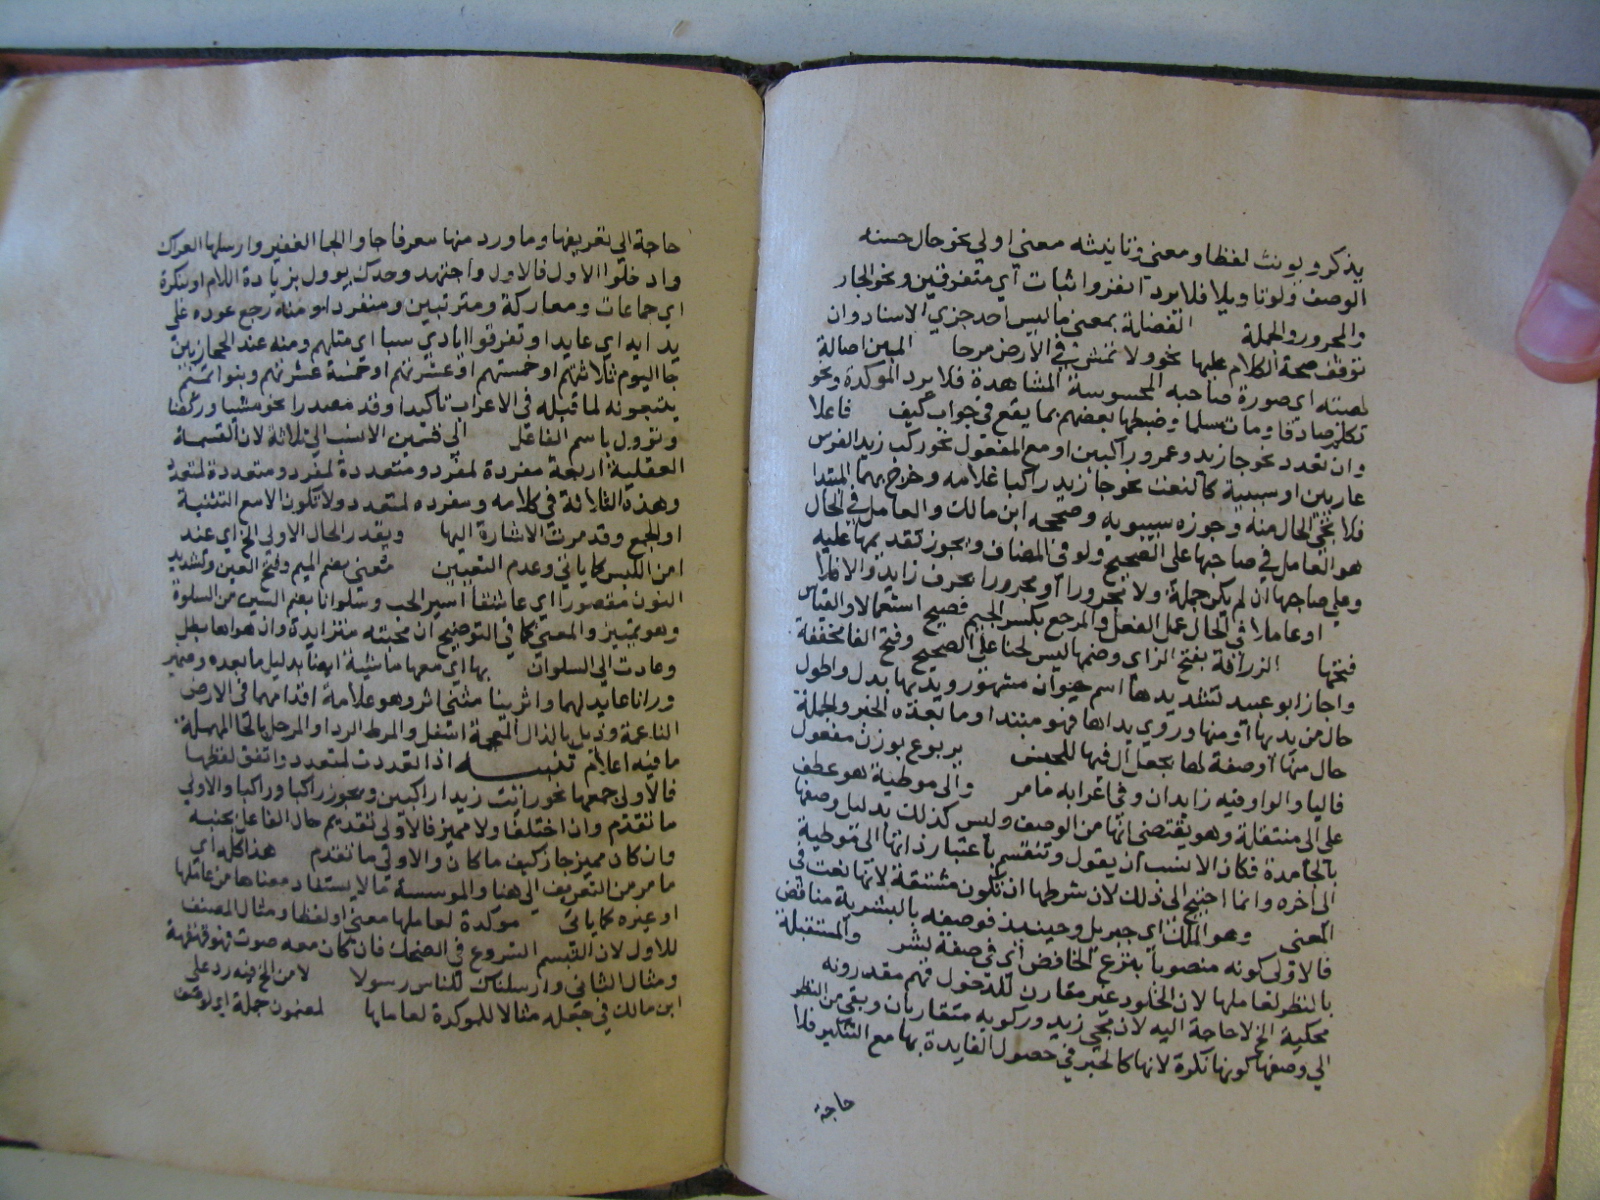 يذكر ويونث لفظا ومعنى وتانيثه معنى اولي نحو حال حسنه
الوصف ولو تاويلا فلا يرد انفروا ثبات اي متفرقين ونحو الجار
والمجرور والجملة الفضلة بمعنى ما ليس احد جزي الاسناد وان
توقف صحة الكلام عليها نحو ولا تمش في الارض مرحا المبين اصالة
لهيئته اي صورة صاحبه المحسوسة المشاهدة فلا يرد الموكدة ونحو
تكلم صادقا ومات مسلما وضبطها بعضهم بما يقع في جواب كيف فاعلا
وان تعدد نحو جا زيد وعمرو راكبين او مع المفعول نحو ركب زيد الفرس
عاريين او سببية كالنعت نحو جا زيد راكبا غلامه وخرج بهما المبتدا
فلا يجي الحال منه وجوزه سيبويه وصححه ابن مالك والعامل في الحال
هو العامل في صاحبها على الصحيح ولو في المضاف ويجوز تقديمها عليه
وعلى صاحبها ان لم يكن جملة ولا مجرورا او مجرورا بحرف زايد والا فلا
او عاملا في الحال عمل الفعل والمرجع بكسر الجيم فصيح استعمالا والقياس
فتحها الزرافة بفتح الزاي وضمها ليس لحنا على الصحيح وفتح الفا مخففة
واجاز ابو عبيد تشديدها اسم حيوان مشهور ويديها بدل واطول
حال من يديها او منها وروي يداها فهو مبتدا وما بعده الخبر والجملة
حال منها او صفة لها بجعل ال فيها للجنس يربوع بوزن مفعول
فاليا والواو فيه زايدان وفي اعرابه ما مر والى موطية هو عطف
على الى منتقلة وهو يقتضي انها من الوصف وليس كذلك بدليل وصفها
بالجامدة فكان الانسب ان يقول وتنقسم باعتبار ذاتها الى موطية
الى اخره وانما احتيج الى ذلك لان شرطها ان تكون مشتقة لانها نعت في
المعنى وهو الملك اي جبريل وحينيذ فوصفه بالبشرية مناقض
فالاولى كونه منصوبا بنزع الخافض اي في صفة بشر والمستقبلة
بالنظر لعاملها لان الخلود غير مقارن للدخول فهم مقدرونه
محكية الخ لا حاجة اليه لان مجي زيد وركوبه متقاربان وبقي من النظر
الي وصفها كونها نكرة لانها كالخبر في حصول الفايدة بها مع التنكير فلا
حاجة
حاجة الي تعريفها وما ورد منها معرفا جاوا الجما الغفير وارسلها العراك
وادخلوا الاول فالاول واجتهد وحدك يوول بزيادة اللام او بنكرة
اي جماعات ومعاركة ومترتبين ومنفردا ومنه رجع عوده على
بدايه اي عايدا وتفرقوا ايادي سبا اي مثلهم ومنه عند الحجازيين
جا اليوم ثلاثتهم او خمستهم او عشرتهم او خمسة عشرتهم وبنو تميم
يتبعونه لما قبله في الاعراب تاكيدا وقد مصدرا نحو مشيا وركضا
وتوول باسم الفاعل الي قسمين الانسب الي ثلاثة لان القسمة
العقلية اربعة مفردة لمفرد ومتعددة لمفرد ومتعددة لمتعدد
وهذه الثلاثة في كلامه ومفرده لمتعدد ولا تكون الا مع التثنية
او الجمع وقد مرت الاشارة اليها ويقدر الحال الاولى الخ اي عند
امن اللبس كما ياتي وعدم التعيين معنى بضم الميم وفتح العين وتشديد
النون مقصورا اي عاشقا اسير الحب وسلوانا بضم السين من السلوة
وهو تمييز والمعنى كما في التوضيح ان محبته متزايدة وان هواها بطل
وعادت الي السلوان بها اي معها ماشية ايضا بدليل ما بعده وضمير
ورانا عايد لهما واثرينا مثنى اثر وهو علامة اقدامهما في الارض
الناعمة وذيل بالذال المعجمة اسفل والمرط الردا والمرحل بالحا المهملة
ما فيه اعلام تنبيه اذا تعددت لمتعدد واتفق لفظها
فالاولى جمعها نحو رايت زيدا راكبين ويجوز راكبا وراكبا والاولي
ما تقدم وان اختلف ولا مميز فالاولى تقديم حال الفاعل بجنبه
وان كان مميز جاز كيف ما كان والاولى ما تقدم هذا كله اي
ما مر من التعريف الي هنا والموسسة ما لا يستفاد معناها من عاملها
او غيره كما ياتي موكدة لعاملها معنى او لفظا ومثال المصنف
للاول لان التبسم الشروع في الضحك فان كان معه صوت فهو قهقهة
ومثال الثاني وارسلناك للناس رسولا لا من الخ فيه رد على
ابن مالك في جعله مثالا للموكدة لعاملها لمضمون جملة اي لوصف